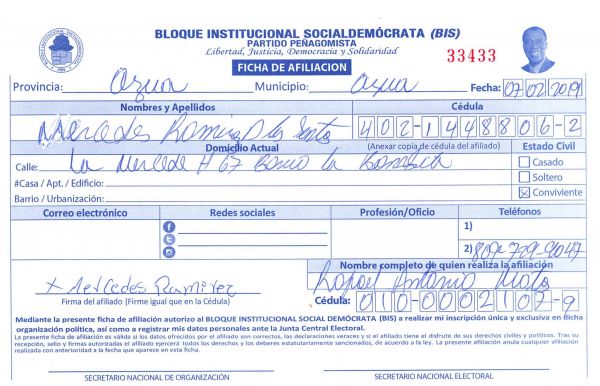 BLOQUE INSTITUCIONAL SOCIALDEMÓCRATA (BIS)
PARTIDO PEÑAGOMISTA
Libertad, Justicia, Democracia y Solidaridad
33433
FICHA DE AFILIACION
Provincia: Azua Municipio: Azua Fecha: 07 02 2019
Nombres y Apellidos Cédula
Mercedes Ramirez De los Santos 402-1448806-2
Domicilio Actual (Anexar copia de cédula del afiliado) Estado Civil
Calle: La Mercede # 67 Barrio La Bombita Casado
#Casa / Apt. / Edificio: Soltero
Barrio / Urbanización: Conviviente
Correo electrónico Redes sociales Profesión/Oficio Teléfonos
1)
2) 809-729-9047
Nombre completo de quien realiza la afiliación
x Mercedes Ramirez Rafael Antonio Mota
Firma del afiliado (Firme igual que en la Cédula) Cédula: 010-0002107-9
Mediante la presente ficha de afiliación autorizo al BLOQUE INSTITUCIONAL SOCIAL DEMÓCRATA (BIS) a realizar mi inscripción única y exclusiva en dicha
organización política, así como a registrar mis datos personales ante la Junta Central Electoral.
La presente ficha de afiliación es válida si los datos ofrecidos por el afiliado son correctos, las declaraciones veraces y si el afiliado tiene el disfrute de sus derechos civiles y políticos. Tras su
recepción, sello y firmas autorizadas el afiliado ejercerá todos los derechos y los deberes estatutariamente sancionados, de acuerdo a la ley. La presente afiliación anula cualquier afiliación
realizada con anterioridad a la fecha que aparece en esta ficha.
SECRETARIO NACIONAL DE ORGANIZACIÓN SECRETARIO NACIONAL ELECTORAL